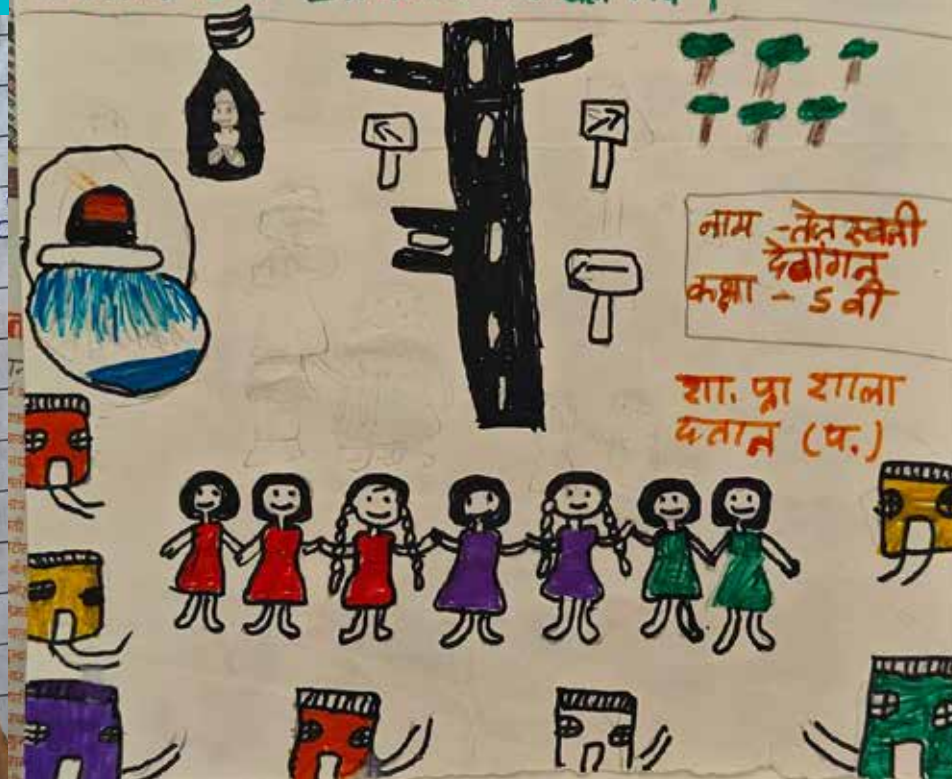 नाम - तेजस्वनी
देवांगन
कक्षा - 5 वी
शा. प्रा शाला
दतान (प.)